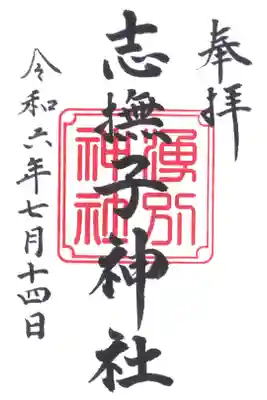 奉拝
志撫子神社
湧別神社
令和六年七月十四日